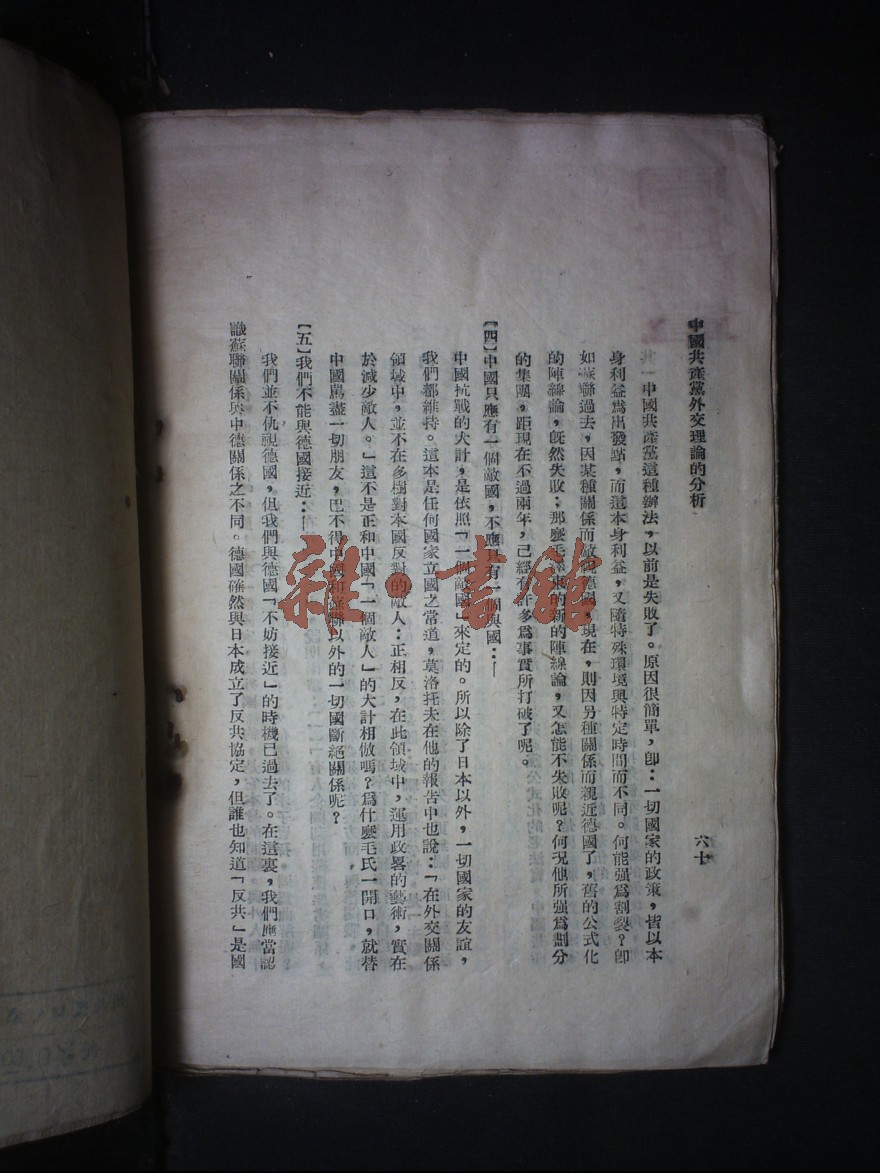 中國共產黨外交理論的分析
六十
中國共產黨這種辦法，以前是失敗了。原因很簡單，卽：一切國家的政策，皆以本
身利益爲出發點，而這本身利益，又隨特殊環境與特定時間而不同。何能强爲割裂？卽
如蘇聯過去，因某種關係而敵視德國，現在，則因另種關係而親近德國了，舊的公式化
的陣線論，旣然失敗；那麼毛澤東的新的陣線論，又怎能不失敗呢？何况他所强爲劃分
的集團，距現在不過兩年，已經有許多爲事實所打破了呢。
【四】中國只應有一個敵國，不應只有一個與國：—
中國抗戰的大計，是依照「一個敵國」來定的。所以除了日本以外，一切國家的友誼，
我們都維持。這本是任何國家立國之常道，莫洛托夫在他的報告中也說：「在外交關係
領域中，並不在多樹對本國反對的敵人：正相反，在此領域中，運用政畧的藝術，實在
於減少敵人。」這不是正和中國「一個敵人」的大計相倣嗎？爲什麼毛氏一開口，就替
中國罵盡一切朋友，巴不得中國和蘇聯以外的一切國斷絕關係呢？
【五】我們不能與德國接近：—
我們並不仇視德國，但我們與德國「不妨接近」的時機已過去了。在這裏，我們應當認
識蘇聯關係與中德關係之不同。德國確然與日本成立了反共協定，但誰也知道「反共」是國
雜·書館